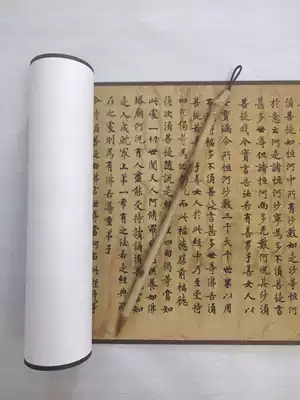 如恒河中所有沙數如是沙等恒河
於意云何是諸恒河沙寧為多不須菩提言
甚多世尊但諸恒河尚多無數何況其沙須
菩提我今實言告汝若有善男子善女人以
七寶滿爾所恒河沙數三千大千世界以用
福多不須菩提言甚多世尊佛告須
菩提若善男子善女人於此經中乃至受持
四句偈等為而此福德勝前福德
復次須菩提隨說是經乃至四句偈等當知
此處一切世間天人阿脩羅皆應供養如佛
塔廟何況有人盡能受持讀誦須菩提當知
是人成就最上第一希有之法若是經典所
在之處則為有佛若尊重弟子
時須菩提白佛言世尊當何名此經我等